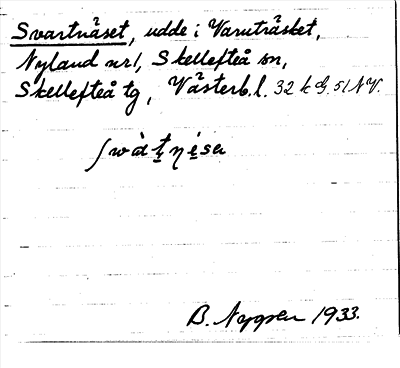 Svartnäset, udde i Varuträsket,
Nyland nr 1, Skellefteå sn,
Skellefteå tg, Västerb. l. 32 k G. 51 NV.
1933.